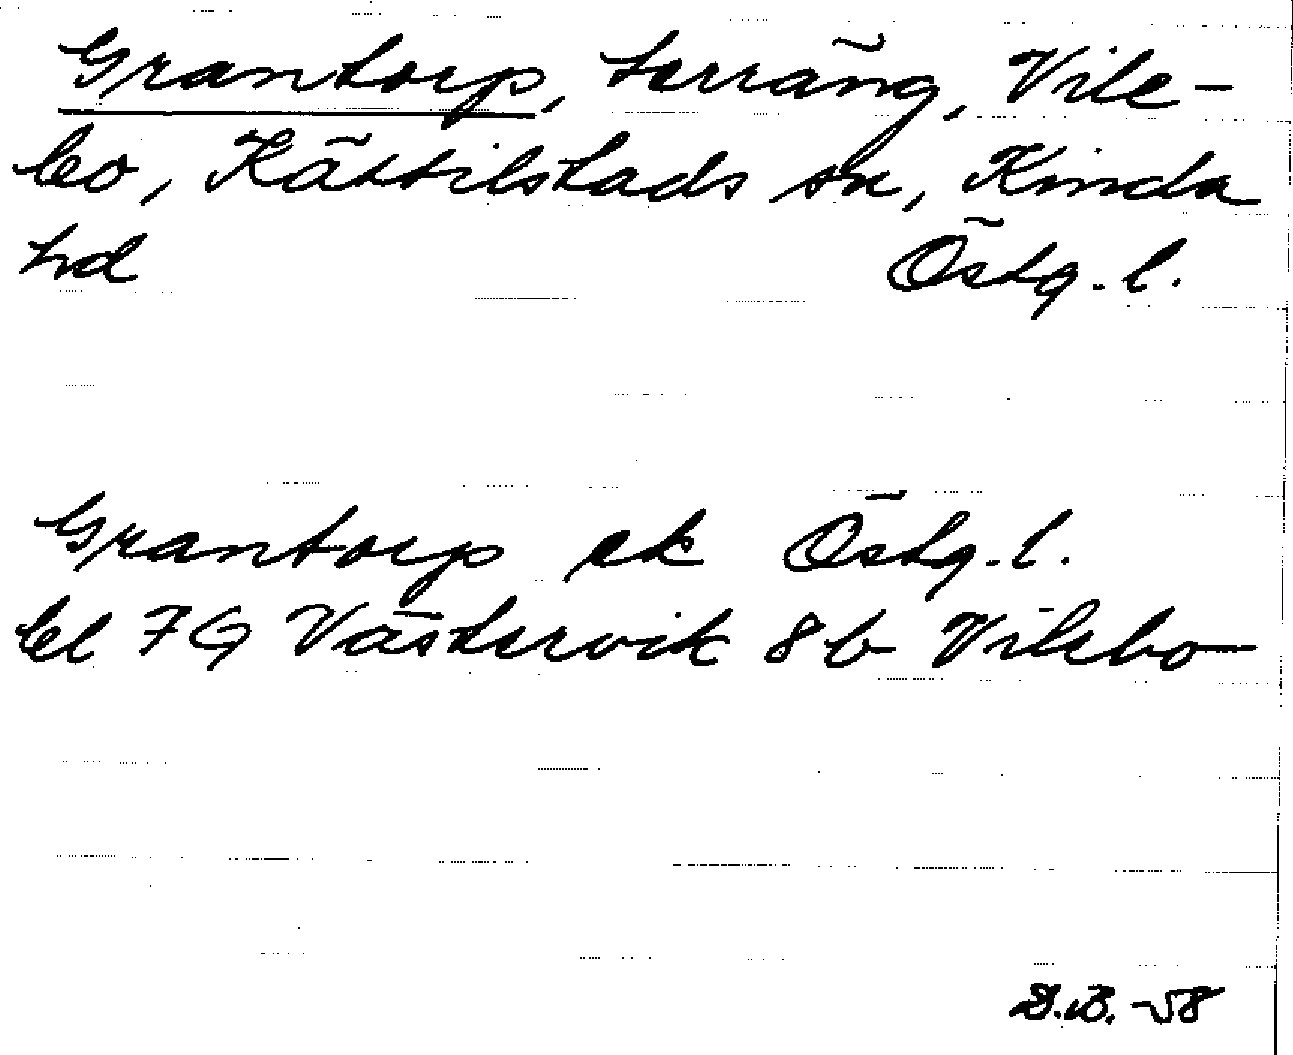 Grantorp, terräng, Vile-
bo, Kättilstads sn, Kinda
hd Östg. l.
Grantorp ek Östg. l.
bl 7G Västervik 8b Vilebo
D.B. -58